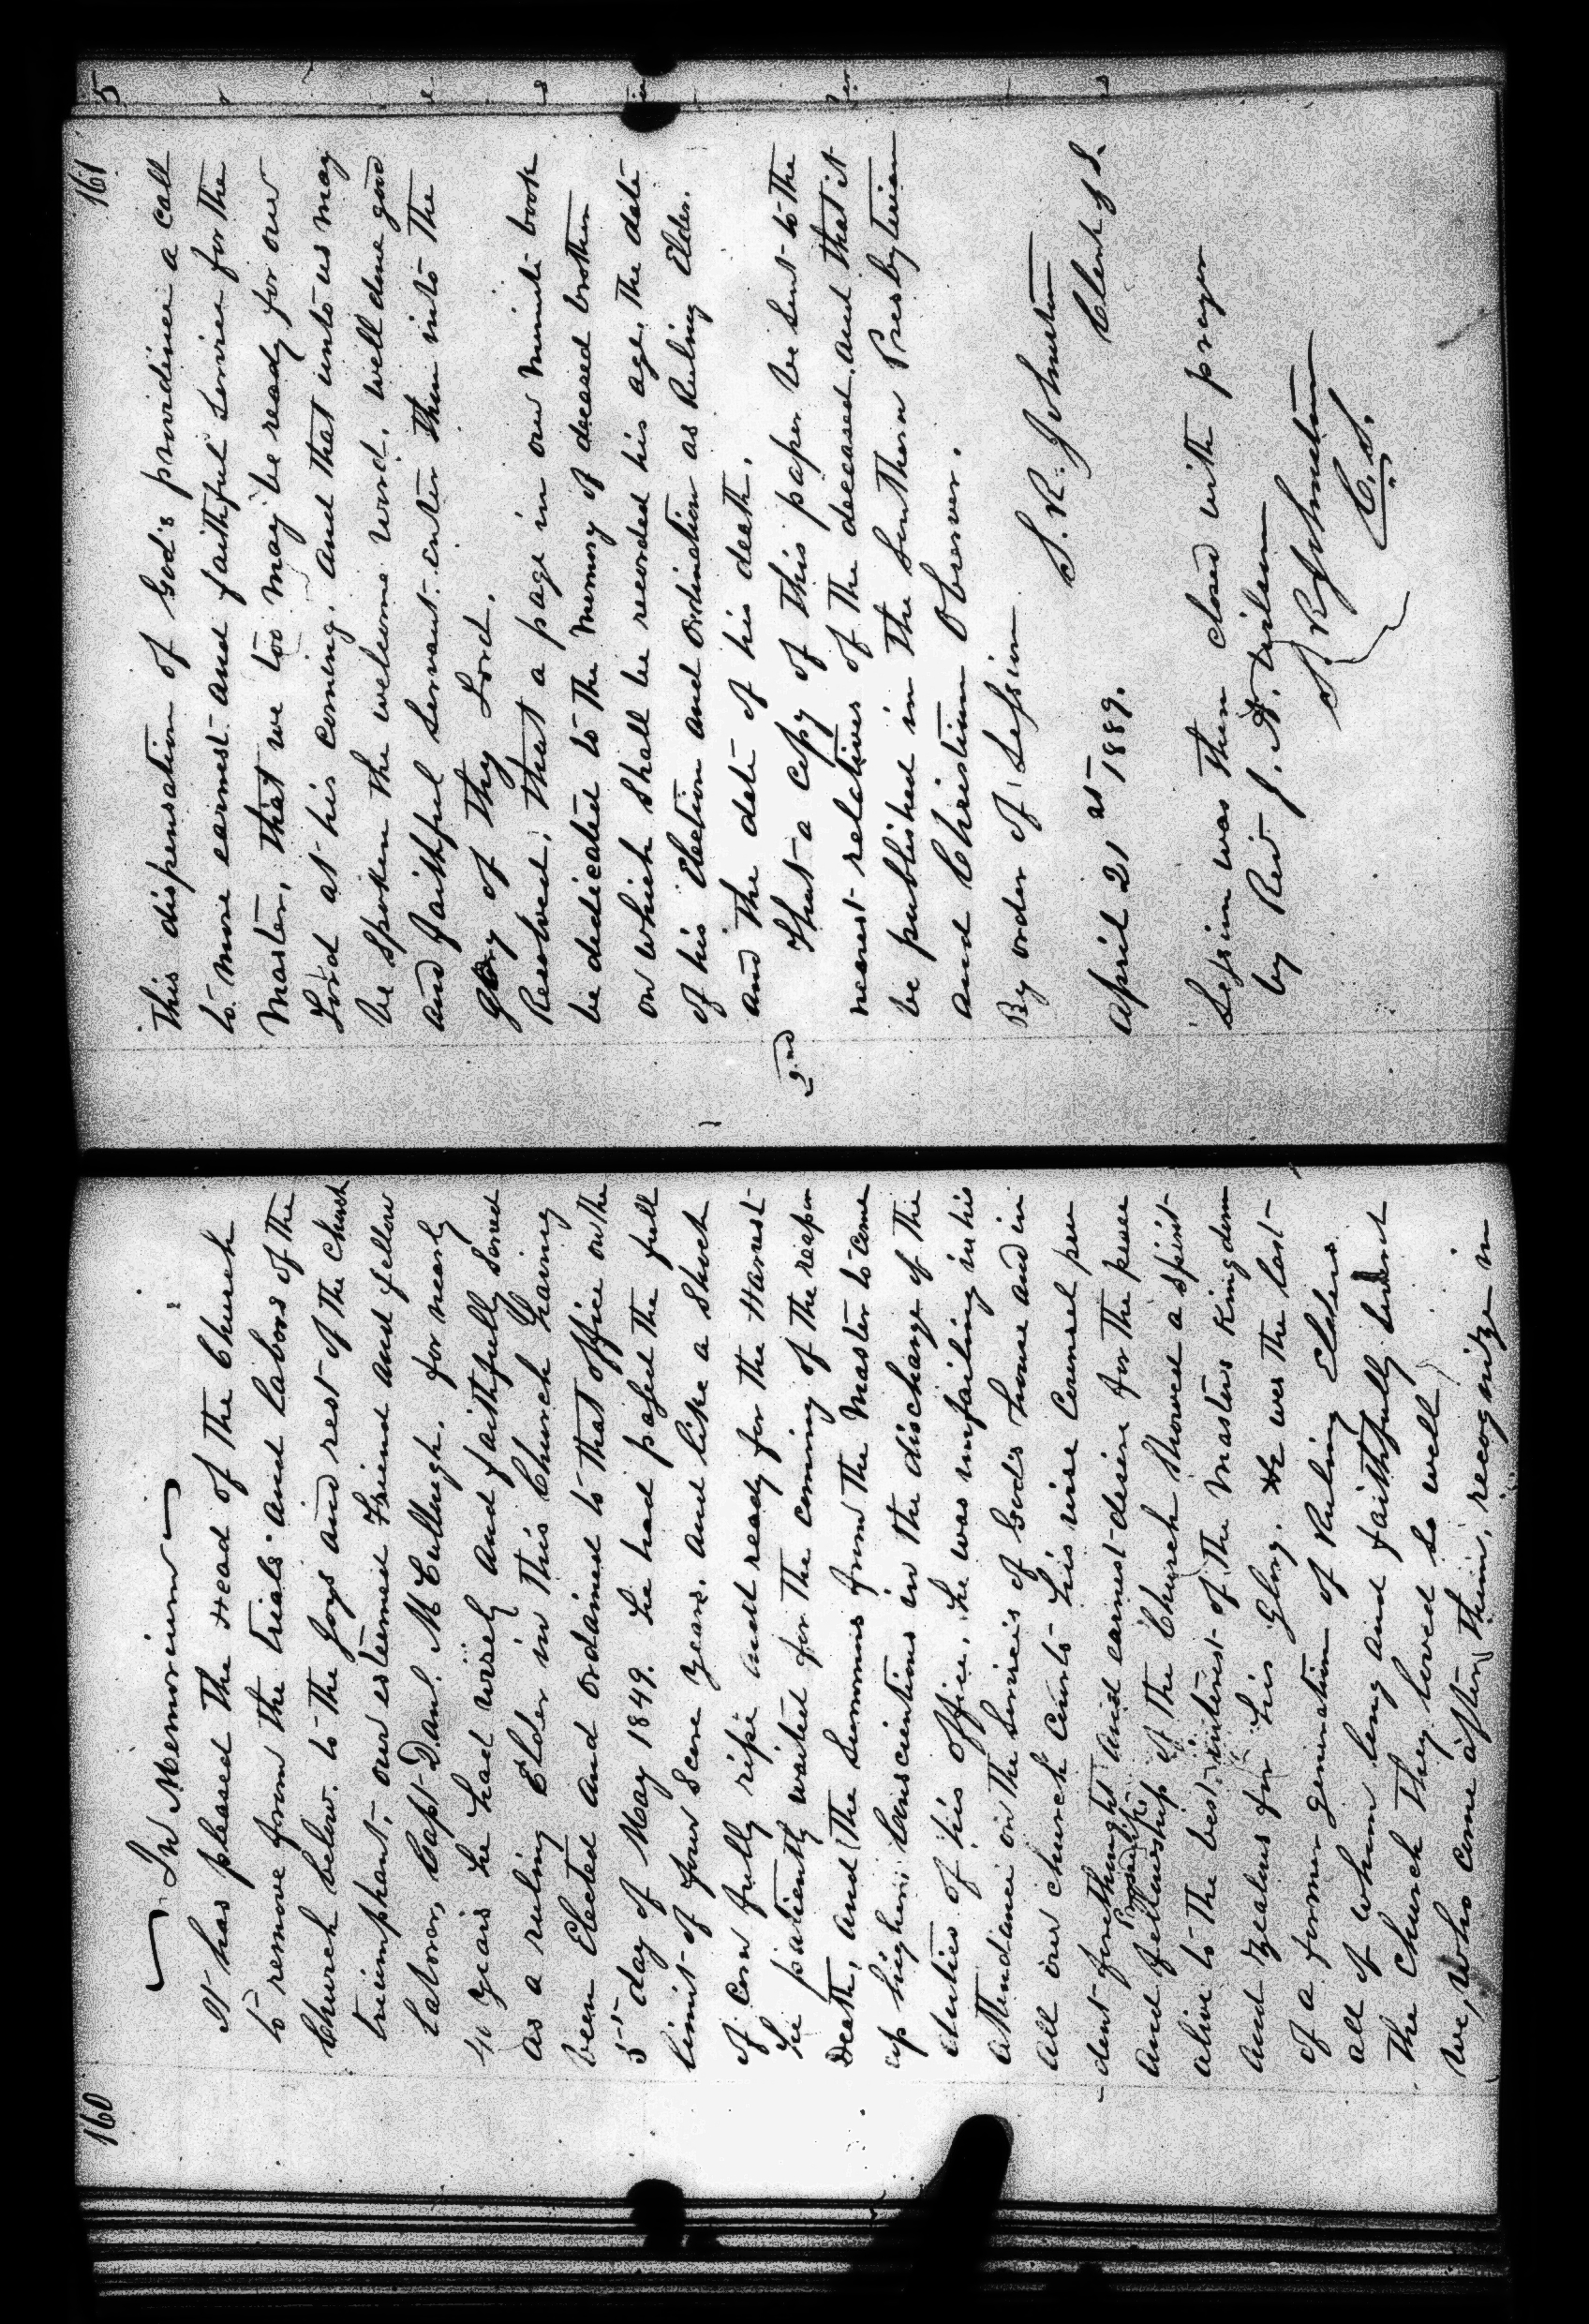 160
In Memorium
It has pleased the Head of the Church
to remove from the trials and labors of the
Church below. to the joys and rest of the Church
triumphant, our esteemed Friend and fellow
Labror, Capt Danl. McCullugh. for nearly
40 years he had wisely and faithfully served
as a ruling Elder in this Church having
been Elected and ordained to that office on the
5 day of May 1849. he had passed the full
limit of four Score years. and like a Shock
of Corn fully ripe and ready for the Harvest
he patiently waited for the coming of the reaper
Death, and the Summons from the Master to come
up higher; Conscientious in the discharge of the
duties of his office. he was unfailing in his
attendance on the Services of God's house and in
all our church Courts his wise Counsel pru
-dent forethought and earnest desire for the peace
and fellowship of the Church Showed a spirit
alive to the best interest of the Masters Kingdom
and zealous for his Glory. He was the last
of a former generation of Ruling Elders
all of whom long and faithfully served
the Church they loved so well
We, who come after them, recognize in
161
This dispensation of God's providence a call
to more earnest and faithful service for the
Master, that we too may be ready for our
Lord at his coming. and that unto us may
be Spoken the welcome word. well done good
and faithful Servant enter thou into the
glory of thy Lord.
Resolved, that a page in our minute book
be dedicated to the Memory of deceased brother
on which Shall be recorded his age, the date
of his Election and Ordination as Ruling Elder.
and the date of his death.
2nd That a copy of this paper be sent to the
nearest relatives of the deceased and that it
be published in the Southern Presbyterian
and Christian Observer.
By order of Session
S. R. Johnston
Clerk of S.
April 21st 1889.
Session was then closed with prayer
by Rev J. A.
S. R Johnston
C. S.
5